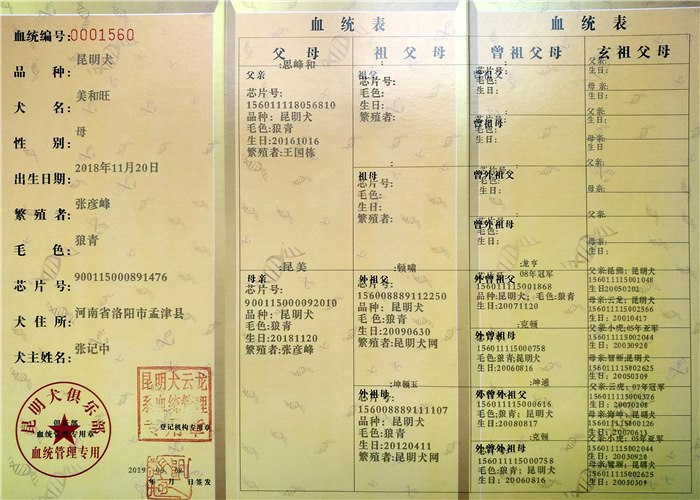 血统编号:0001560
品 种: 昆明犬
犬 名: 美和旺
性 别: 母
出生日期: 2018年11月20日
繁 殖 者: 张彦峰
毛 色: 狼青
芯 片 号: 900115000891476
犬 住 所: 河南省洛阳市孟津县
犬主姓名: 张记中
昆明犬俱乐部
血统管理专用章
血统管理专用
昆明犬云龙
系血统管理
登记机构专用章
专用章
2019
年 月 日签发
血 统 表
父 母
:思峰和
父亲
芯片号:
156011118056810
品种: 昆明犬
毛色:狼青
生日:20161016
繁殖者:王国栋
:昆美
母亲
芯片号:
900115000092010
品种: 昆明犬
毛色:狼青
生日:20181120
繁殖者:张彦峰
祖 父 母
:
祖父
芯片号:
毛色:
生日:
繁殖者:
:
祖母
芯片号:
毛色:
生日:
繁殖者:
:顿啸
外祖父
156008889112250
品种: 昆明犬
毛色:狼青
生日:20090630
繁殖者:昆明犬网
:坤顿玉
外祖母
156008889111107
品种: 昆明犬
毛色:狼青
生日:20120411
繁殖者:昆明犬网
血 统 表
曾 祖 父 母
曾祖父
芯片号:
毛色:
生日:
曾祖母
毛色:
生日:
曾外祖父
芯片号:
毛色:
生日:
曾外祖母
毛色:
生日:
:龙亨
芯片号: 08年冠军
156011115001868
品种:昆明犬; 毛色:狼青
生日:20071120
:克顿
外曾祖母
156011115000758
狼青;昆明犬
生日:20060816
:坤通
外曾外祖父
156011114000616
毛色:狼青; 昆明犬
生日:20080817
:克顿
外曾外祖母
156011115000758
毛色:狼青; 昆明犬
生日: 20060816
玄 祖 父 母
父亲:
生日:
母亲:
生日:
父亲:
生日:
母亲:
生日:
父亲:
母亲:
父亲:
母亲:
生日:
父亲:昆熊; 昆明犬
156011115001048
生日:20050202
母亲:云龙; 昆明犬
156011115002566
生日: 20010417
父亲:小虎;05年亚军
156011115002244
生日: 20030920
母亲:智丽;昆明犬
156011115002625
生日: 20050309
父亲:云虎; 07年冠军
156011115000376
生日: 20070208
母亲:海坤; 昆明犬
156011115000126
生日: 20070615
父亲:小虎;05年亚军
156011115002244
生日: 20030920
母亲:智丽; 昆明犬
156011115002625
生日: 20050309